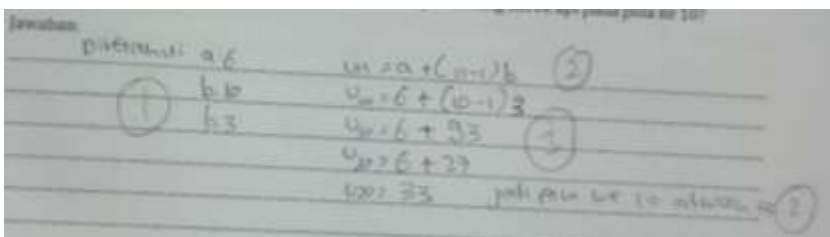 pola ke 10?
Jawaban:
Diketahui a 6
b. 10
b 3
un = a + (n-1)b
U₁₀ = 6 + (10-1) 3
U₁₀ = 6 + 93
U₁₀ = 6 + 27
U10 = 33 jadi pola ke 10 adalah
1
2
1
2